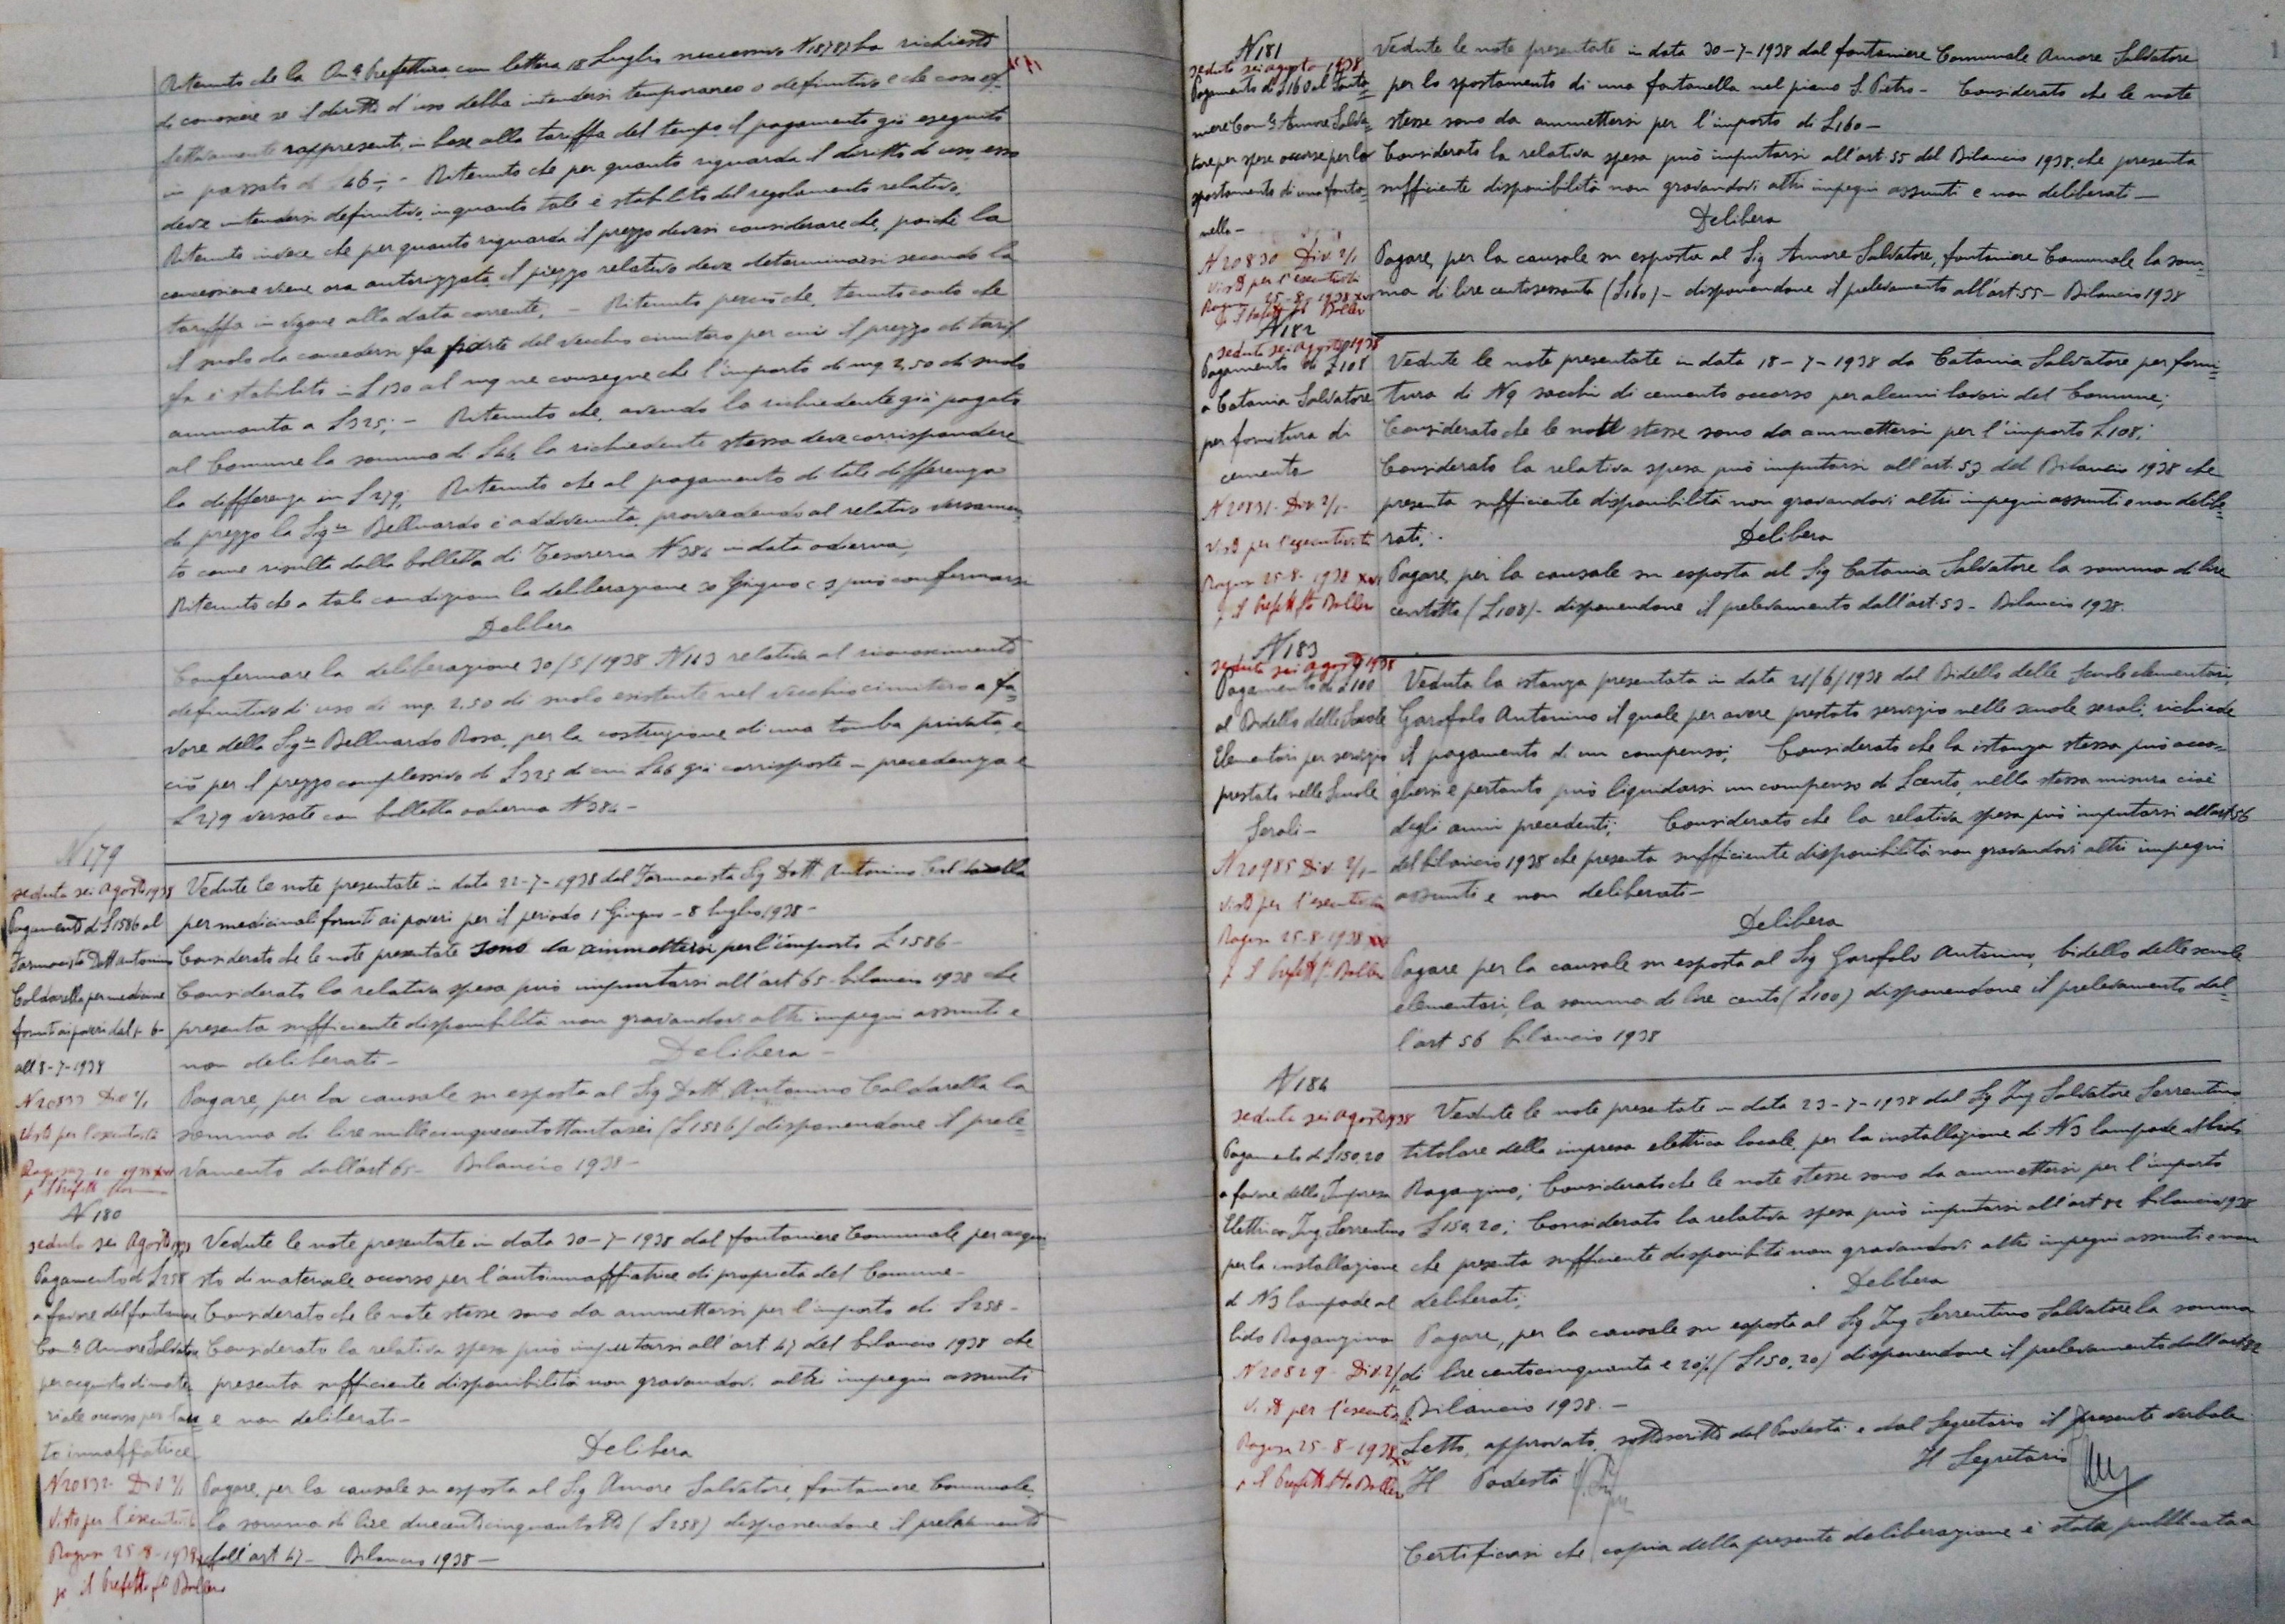 Ritenuto che la On. Prefettura con lettera 18 Luglio successivo N 18787 ha richiesto
di conoscere se il diritto d'uso debba intendersi temporaneo o definitivo e che cosa ef-
fettivamente rappresenti, in base alla tariffa del tempo il pagamento già eseguito
in passato di £46; - Ritenuto che per quanto riguarda il diritto di uso, esso
deve intendersi definitivo in quanto tale è stabilito dal regolamento relativo;
Ritenuto invece che per quanto riguarda il prezzo devesi considerare che, poichè la
concessione viene ora autorizzata il prezzo relativo deve determinarsi secondo la
tariffa in vigore alla data corrente; - Ritenuto perciò che, tenuto conto che
il suolo da concedersi fa parte del vecchio cimitero per cui il prezzo di tarif
fa è stabilito in £130 al mq ne consegue che l'importo di mq. 2,50 di suolo
ammonta a £325; - Ritenuto che, avendo la richiedente già pagato
al Comune la somma di £46, la richiedente stessa deve corrispondere
la differenza in £279; Ritenuto che al pagamento di tale differenza
di prezzo la Sig.ra Belluardo è addivenuta, provvedendo al relativo versamen-
to come risulta dalla bolletta di Tesoreria N 384 in data odierna;
Ritenuto che a tali condizioni la deliberazione 30 Giugno c.a può confermarsi
Delibera
Confermare la deliberazione 30/5/1938 N 143 relativa al riconoscimento
definitivo di uso di mq. 2,50 di suolo esistente nel vecchio cimitero a fa=
vore della Sig.ra Belluardo Rosa, per la costruzione di una tomba privata, e
ciò per il prezzo complessivo di £325 di cui £46 già corrisposte in precedenza e
£279 versate con bolletta odierna N 384 -
N 179
seduta sei Agosto 1938
Pagamento di £1586 al
Farmacista Dott Antonino
Caldarella per medicine
forniti ai poveri dal 1-6-
all'8-7-1938
N 20833 Div 2/1
Visto per l'esecutività
Vedute le note presentate in data 22-7-1938 dal Farmacista Sig Dott Antonino Caldarella
per medicinali forniti ai poveri per il periodo 1 Giugno - 8 luglio 1938 -
Considerato che le note presentate sono da ammettersi per l'importo £1586 -
Considerato la relativa spesa può imputarsi all'art 65 - bilancio 1938 che
presenta sufficiente disponibilità non gravandovi altri impegni assunti e
non deliberati - Delibera -
Pagare, per la causale su esposta al Sig Dott Antonino Caldarella la
somma di lire millecinquecentottantasei (£1586) disponendone il prele=
vamento dall'art 65 - Bilancio 1938 -
N 180
seduta sei Agosto 1938
Pagamento di £258
a favore del fontaniere
Com.le Amore Salvatore
per acquisto di mate
riale occorso per l'au=
to innaffiatrice
N 20832 - Div 2/1
Visto per l'esecutività
Ragusa 25-8-1938
p Il Prefetto fto Boller
Vedute le note presentate in data 30-7-1938 dal fontaniere Comunale per acqui-
sto di materiale occorso per l'autoinnaffiatrice di proprietà del Comune -
Considerato che le note stesse sono da ammettersi per l'importo di £258 -
Considerato la relativa spesa può imputarsi all'art 47 del bilancio 1938 che
presenta sufficiente disponibilità non gravandovi altri impegni assunti
e non deliberati -
Delibera
Pagare, per la causale su esposta al Sig Amore Salvatore, fontaniere Comunale,
la somma di lire duecentocinquantotto (£258) disponendone il prelevamento
dall'art 47 - Bilancio 1938 -
N 181
seduta sei agosto 1938
Pagamento di £160 al Fonta=
niere Com.le Amore Salva=
tore per spese occorse per lo
spostamento di una fonta=
nella -
N 20830 Div 2/1
Visto per l'esecutività
Ragusa 25-8-1938 XVI
p Il Prefetto fto Boller
Vedute le note presentate in data 30-7-1938 dal fontaniere Comunale Amore Salvatore
per lo spostamento di una fontanella nel piano S. Pietro - Considerato che le note
stesse sono da ammettersi per l'importo di £160 -
Considerato la relativa spesa può imputarsi all'art. 55 del Bilancio 1938 che presenta
sufficiente disponibilità non gravandovi altri impegni assunti e non deliberati -
Delibera
Pagare, per la causale su esposta al Sig Amore Salvatore, fontaniere Comunale la som-
ma di lire centosessanta (£160) - disponendone il prelevamento all'art. 55 - Bilancio 1938
N 182
seduta sei Agosto 1938
Pagamento di £108
a Catania Salvatore
per fornitura di
cemento
N 20831 - Div. 2/1 -
Visto per l'esecutività
Ragusa 25-8-1938 XVI
p Il Prefetto fto Boller
Vedute le note presentate in data 18-7-1938 da Catania Salvatore per forni=
tura di N 9 sacchi di cemento occorso per alcuni lavori del Comune;
Considerato che le note stesse sono da ammettersi per l'importo £108;
Considerato la relativa spesa può imputarsi all'art. 53 del Bilancio 1938 che
presenta sufficiente disponibilità non gravandovi altri impegni assunti e non delibe=
rati; - Delibera
Pagare, per la causale su esposta al Sig Catania Salvatore la somma di lire
centotto (£108) - disponendone il prelevamento dall'art. 53 - Bilancio 1938.
N 183
seduta sei agosto 1938
Pagamento di £100
al Bidello delle Scuole
Elementari per servizio
prestato nelle Scuole
Serali -
N 20985 Div. 2/1 -
Visto per l'esecutività
Ragusa 25-8-1938 XVI
p Il Prefetto fto Boller
Veduta la istanza presentata in data 21/6/1938 dal Bidello delle Scuole elementari,
Garofalo Antonino il quale per avere prestato servizio nelle scuole serali, richiede
il pagamento di un compenso; Considerato che la istanza stessa può acco=
gliersi e pertanto può liquidarsi un compenso di £cento, nella stessa misura cioè
degli anni precedenti; Considerato che la relativa spesa può imputarsi all'art 56
del bilancio 1938 che presenta sufficiente disponibilità non gravandovi altri impegni
assunti e non deliberati -
Delibera
Pagare per la causale su esposta al Sig Garofalo Antonino, bidello delle scuole
elementari, la somma di lire cento (£100) disponendone il prelevamento dal=
l'art 56 bilancio 1938
N 184
seduta sei Agosto 1938
Pagamento di £150,20
a favore della Impresa
Elettrica Ing Serrentino
per la installazione
di N3 lampade al
lido Raganzino
N 20829 - Div. 2/1
Visto per l'esecutività
Ragusa 25-8-1938 XVI
p Il Prefetto fto Boller
Vedute le note presentate in data 23-7-1938 dal Sig Ing Salvatore Serrentino
titolare della impresa elettrica locale, per la installazione di N3 lampade al lido
Raganzino; Considerato che le note stesse sono da ammettersi per l'importo
£150,20; Considerato la relativa spesa può imputarsi all'art 82 bilancio 1938
che presenta sufficiente disponibilità non gravandovi altri impegni assunti e non
deliberati; Delibera
Pagare, per la causale su esposta al Sig Ing Serrentino Salvatore la somma
di lire centocinquanta e 20% (£150,20) disponendone il prelevamento dall'art 82
Bilancio 1938. -
Letto, approvato, sottoscritto dal Podestà e dal Segretario il presente verbale
Il Podestà Il Segretario
Certificasi che copia della presente deliberazione è stata pubblicata a